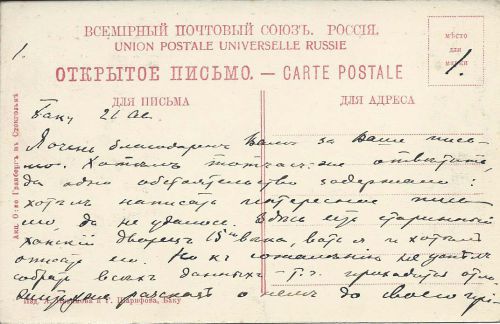 1.
ВСЕМІРНЫЙ ПОЧТОВЫЙ СОЮЗЪ. РОССІЯ.
UNION POSTALE UNIVERSELLE RUSSIE
ОТКРЫТОЕ ПИСЬМО. — CARTE POSTALE
МѢСТО
ДЛЯ
МАРКИ
1.
ДЛЯ ПИСЬМА
ДЛЯ АДРЕСА
Баку 21 Ав.
Я очень благодарен Вам за Ваше пись-
мо. Хотѣлъ тотчасъ же отвѣтить,
да одно обстоятельство задержало:
хотѣл написать интересное пись
мо, да не удалось. Здѣсь есть старинный
ханскій дворец 15го вѣка, вот я и хотѣл
описать его. Но къ сожалѣнію не успѣл
собрать всѣх данных — Т. приходится отло-
разсказ о нем до своего прі-
Акц. О-во Гранбергъ въ Стокгольмѣ
Изд. А. и Г. Шарифова, Баку